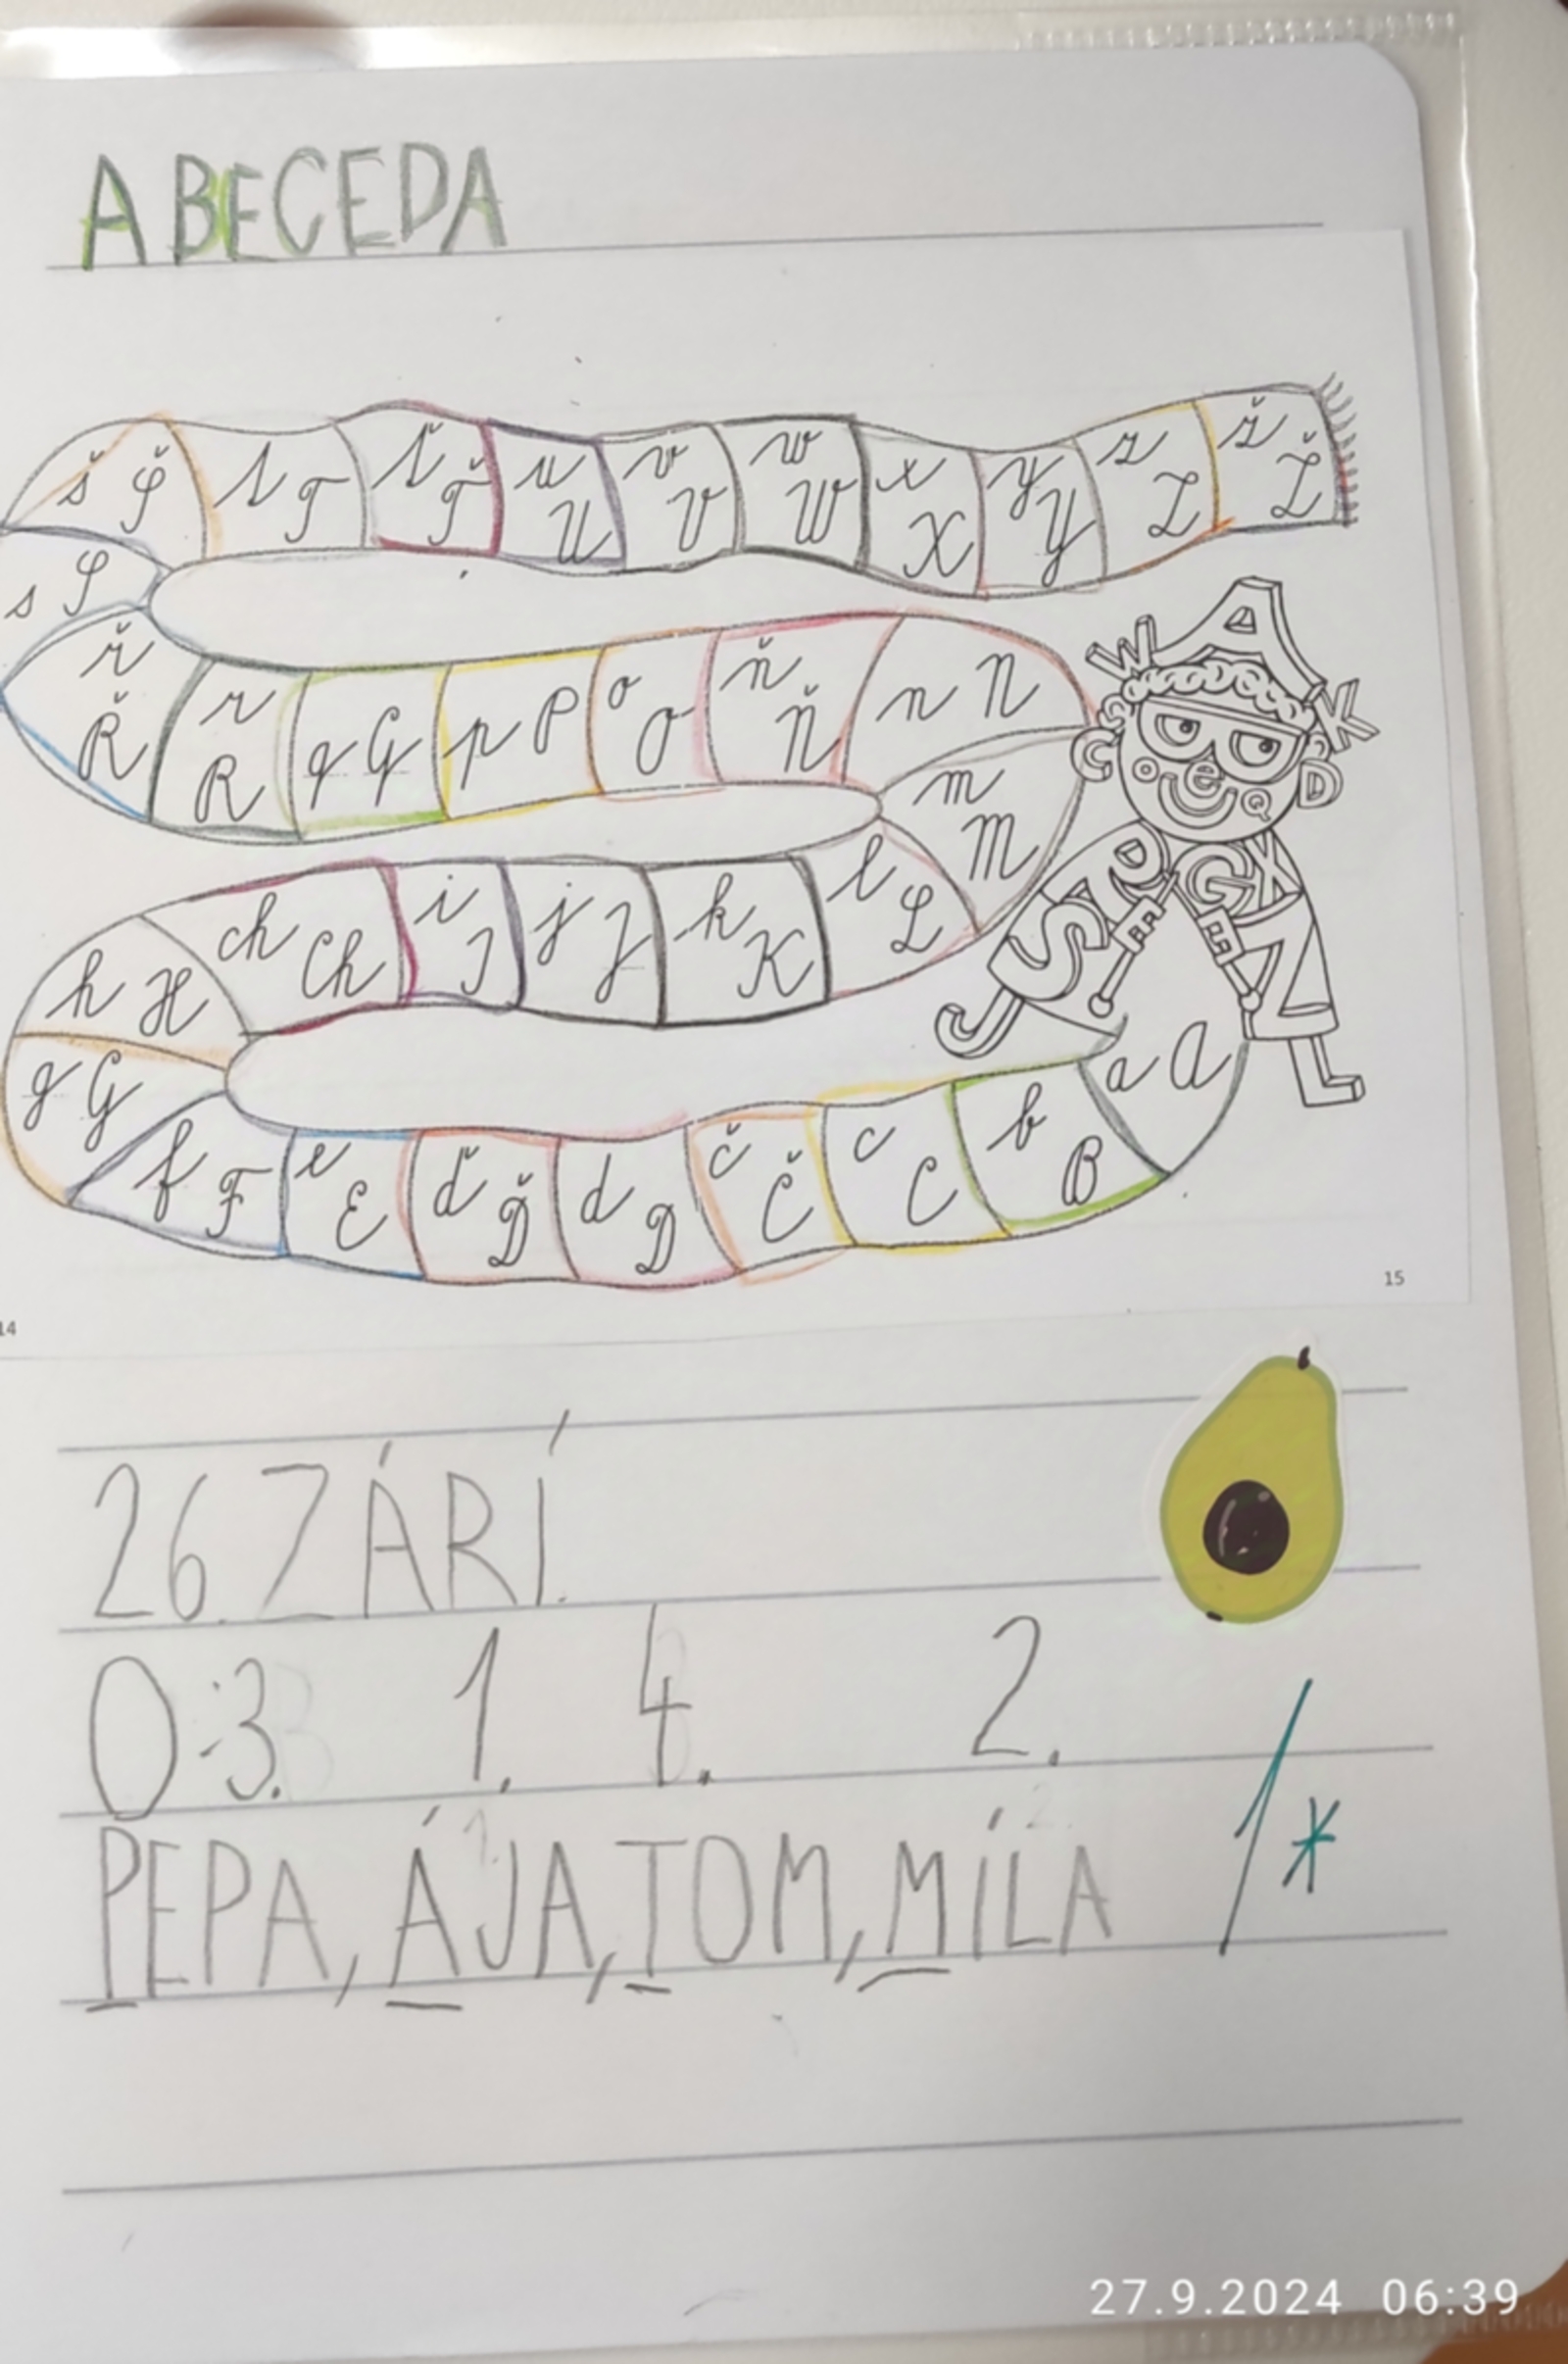 ABECEDA
š Š t T ť Ť u U v V w W x X y Y z Z ž Ž
s S
ř Ř r R q Q p P o O ň Ň n N
m M
h H ch Ch i I j J k K l L
g G f F e E ď Ď d D č Č c C b B a A
14 15
26. ZÁRÍ.
O:3. 1. 4. 2.
PEPA, ÁJA, TOM, MÍLA 1*
27.9.2024 06:39